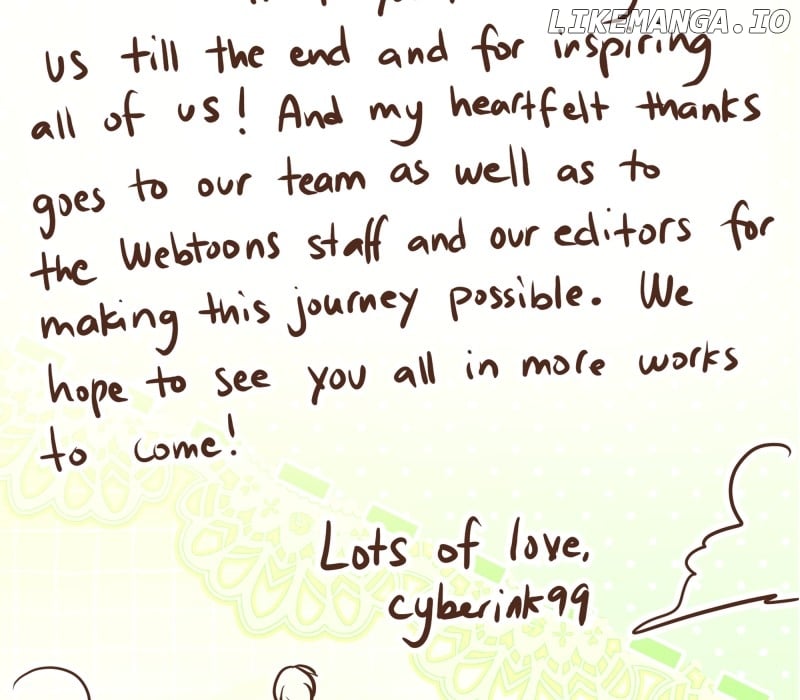 LIKEMANGA.IO
us till the end and for inspiring
all of us! And my heartfelt thanks
goes to our team as well as to
the Webtoons staff and our editors for
making this journey possible. We
hope to see you all in more works
to come!
Lots of love,
cyberink99